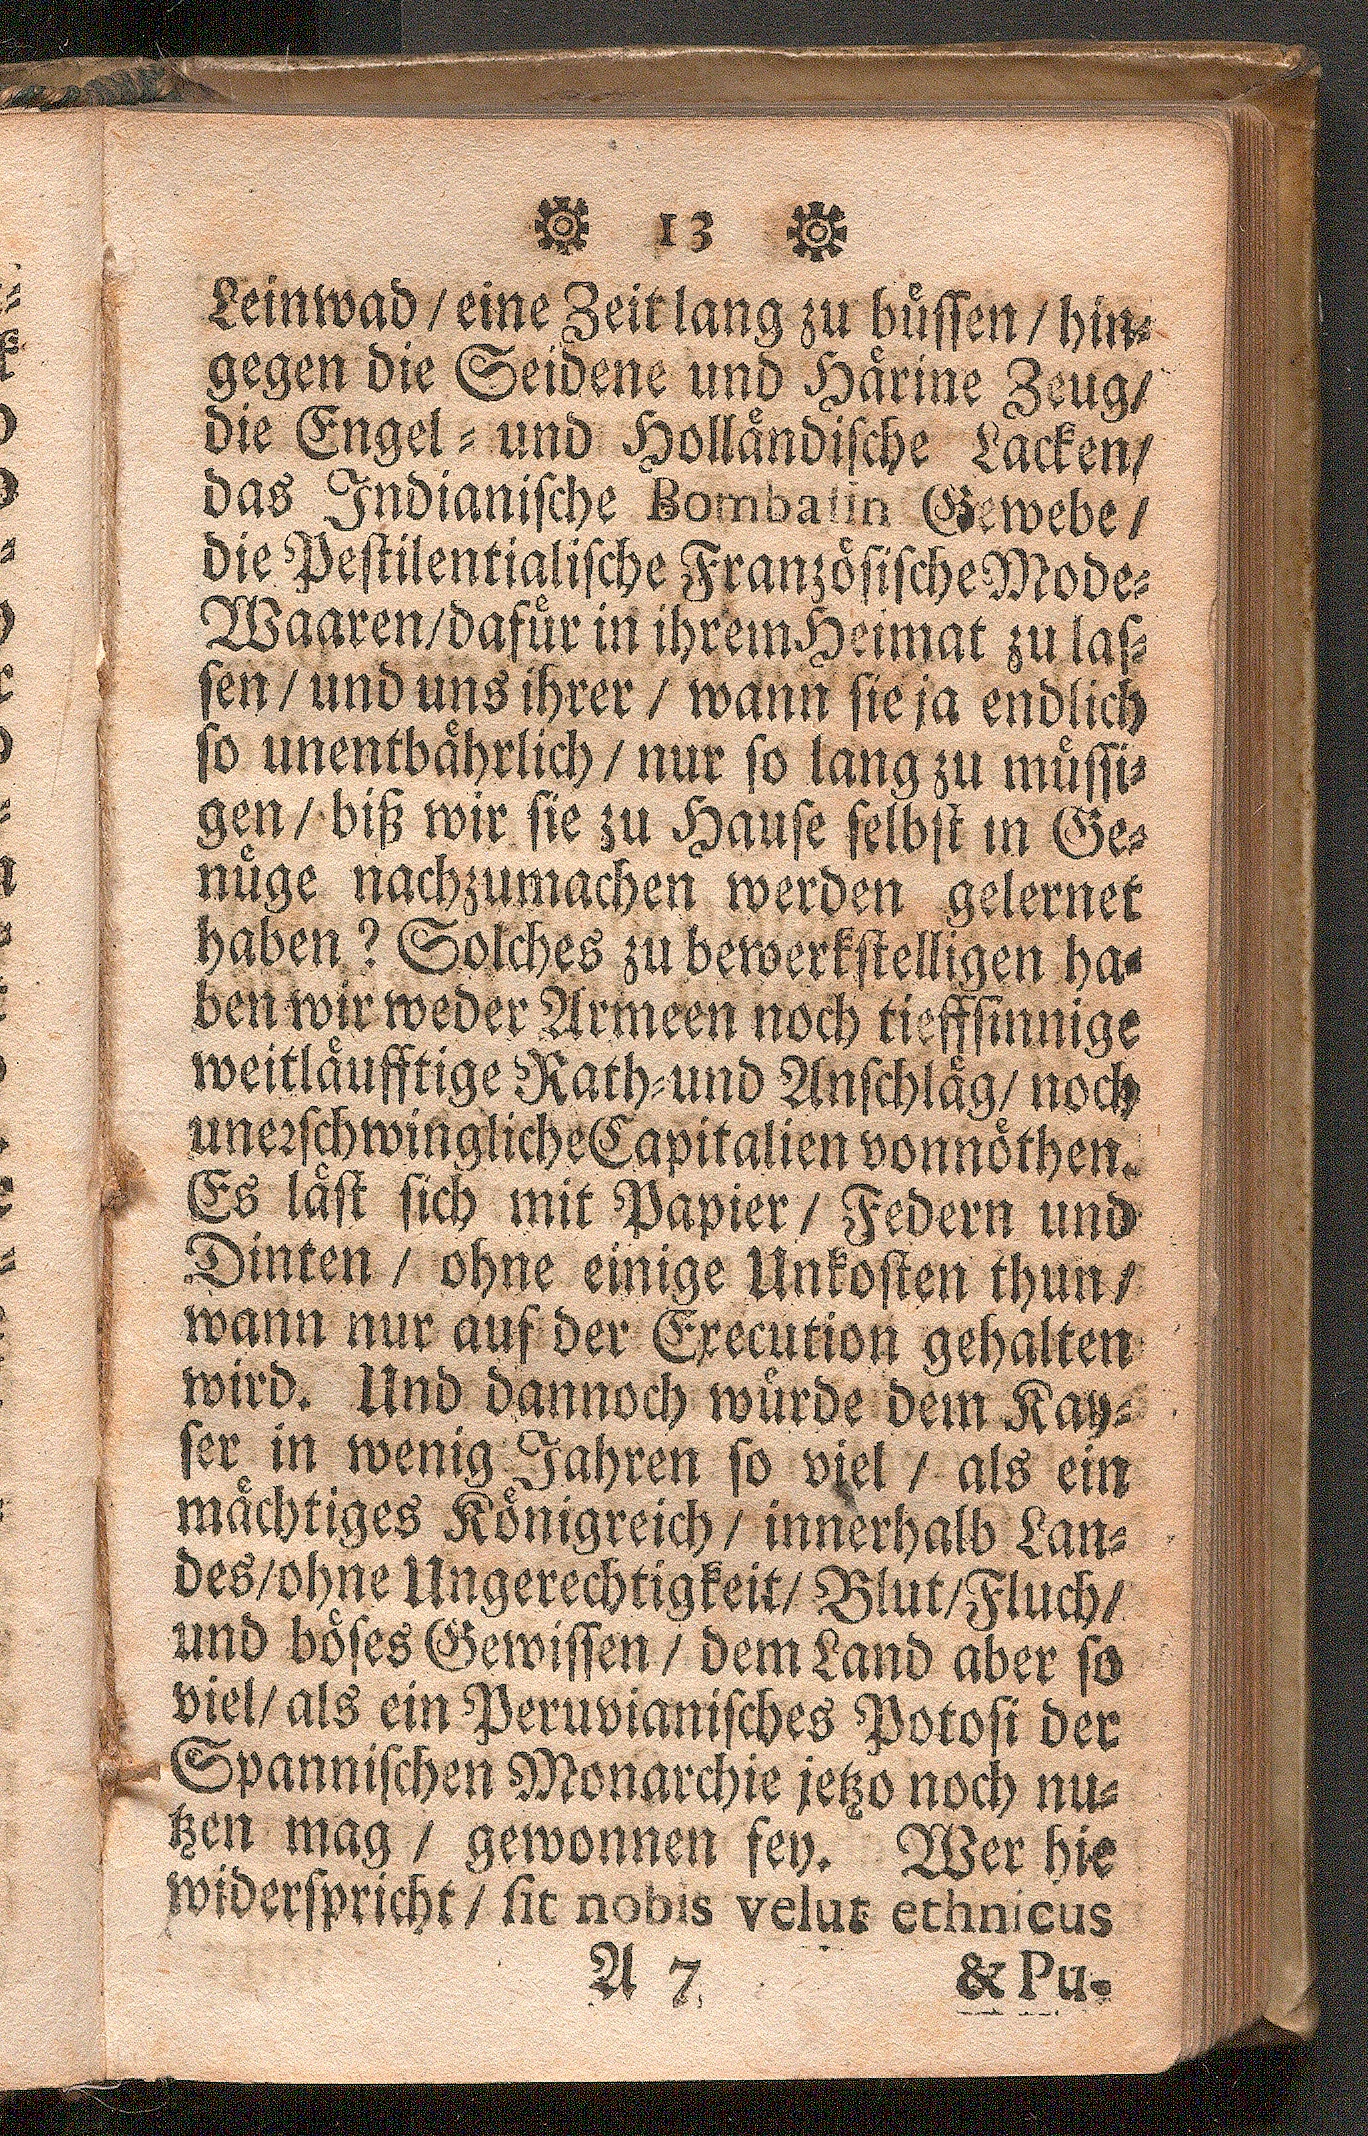 13
Leinwad / eine Zeit lang zu buͤſſen / hin⸗
gegen die Seidene und Haͤrine Zeug/
die Engel⸗ und Hollaͤndiſche Lacken/
das Indianiſche Bombaſin Gewebe /
die Peſtilentialiſche Franzoͤſiſche Mode⸗
Waaren/dafuͤr in ihrem Heimat zu laſ⸗
ſen / und uns ihrer / wann ſie ja endlich
ſo unentbaͤhrlich / nur ſo lang zu muͤſſi⸗
gen / biß wir ſie zu Hauſe ſelbſt in Ge⸗
nuͤge nachzumachen werden gelernet
haben ? Solches zu bewerkſtelligen ha⸗
ben wir weder Armeen noch tieffſinnige
weitlaͤufftige Rath⸗und Anſchlaͤg/ noch
uneꝛſchwingliche Capitalien vonnoͤthen.
Es laͤſt ſich mit Papier / Federn und
Dinten / ohne einige Unkoſten thun /
wann nur auf der Execution gehalten
wird. Und dannoch wuͤrde dem Kay⸗
ſer in wenig Jahren ſo viel / als ein
maͤchtiges Koͤnigreich / innerhalb Lan⸗
des/ohne Ungerechtigkeit/ Blut/Fluch/
und boͤſes Gewiſſen / dem Land aber ſo
viel/ als ein Peruvianiſches Potoſi der
Spanniſchen Monarchie jetzo noch nu⸗
tzen mag / gewonnen ſey. Wer hie
widerſpricht / ſit nobis velut ethnicus
A 7 & Pu-